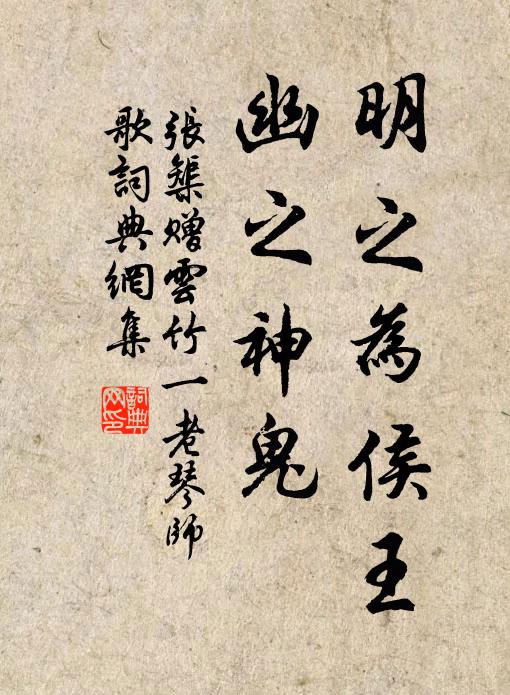 明之為侯王
幽之神鬼
張榘贈雲竹一老琴師
歌詞典網集
詞典
网印